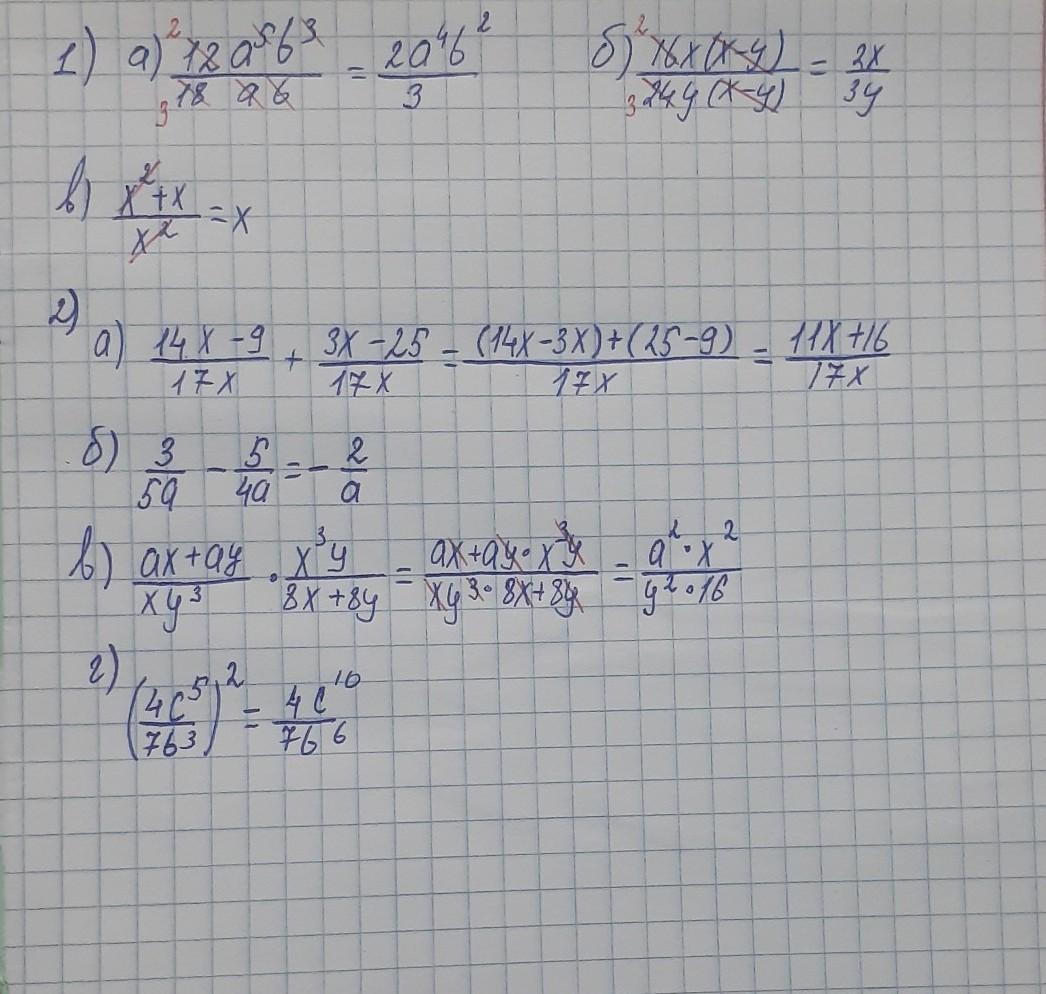 1) а) 12a⁵b³/18ab = 2a⁴b²/3 б) 16x(x-y)/24y(x-y) = 2x/3y
в) x²+x/x² = x
2)
а) 14x-9/17x + 3x-25/17x = (14x-3x)+(25-9)/17x = 11x+16/17x
б) 3/5a - 5/4a = - 2/a
в) ax+ay/xy³ · x³y/8x+8y = ax+ay·x³y/xy³·8x+8y = a²·x²/y²·16
г) (4c⁵/7b³)² = 4c¹⁰/7b⁶